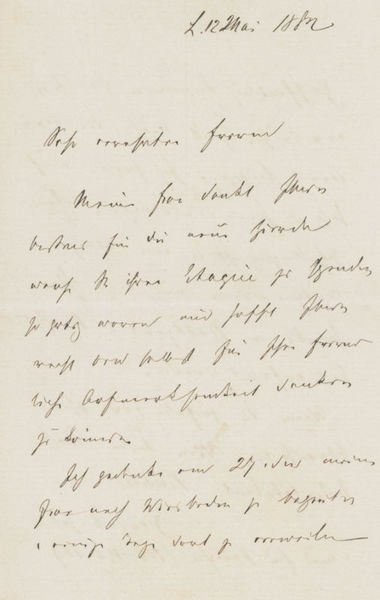 L. 12 Mai 1882
Sehr verehrter Freund
Meine Frau dankt Ihnen
bestens für die neue Zierde
welche Sie ihrer Etagère zu spenden
so gütig waren und hofft Ihnen
recht bald selbst für Ihre freund
liche Aufmerksamkeit danken
zu können
Ich gedenke am 27 meine
Frau nach Wiesbaden zu begleiten
u einige Tage dort zu verweilen